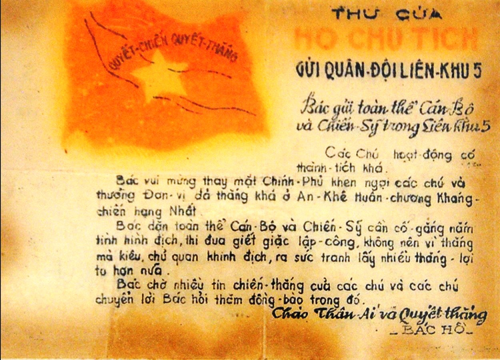 THƯ CỦA
HỒ CHỦ TỊCH
GỬI QUÂN-ĐỘI LIÊN-KHU 5
QUYẾT-CHIẾN QUYẾT-THẮNG
Bác gửi toàn thể Cán-Bộ
và Chiến-Sỹ trong Liên khu 5
Các Chú hoạt-động có
thành-tích khá.
Bác vui mừng thay mặt Chính-Phủ khen ngợi các chú và
thưởng Đơn-vị đã thắng khá ở An-Khê Huân-chương Kháng-
chiến hạng Nhất
Bác dặn toàn thể Cán-Bộ và Chiến-Sỹ cần cố-gắng nắm
tình hình địch, thi đua giết giặc lập-công, không nên vì thắng
mà kiêu, chủ quan khinh địch, ra sức tranh lấy nhiều thắng-lợi
to hơn nữa.
Bác chờ nhiều tin chiến-thắng của các chú và các chú
chuyển lời Bác hỏi thăm đồng-bào trong đó.
Chào Thân-Ái và Quyết thắng
_BÁC HỒ_